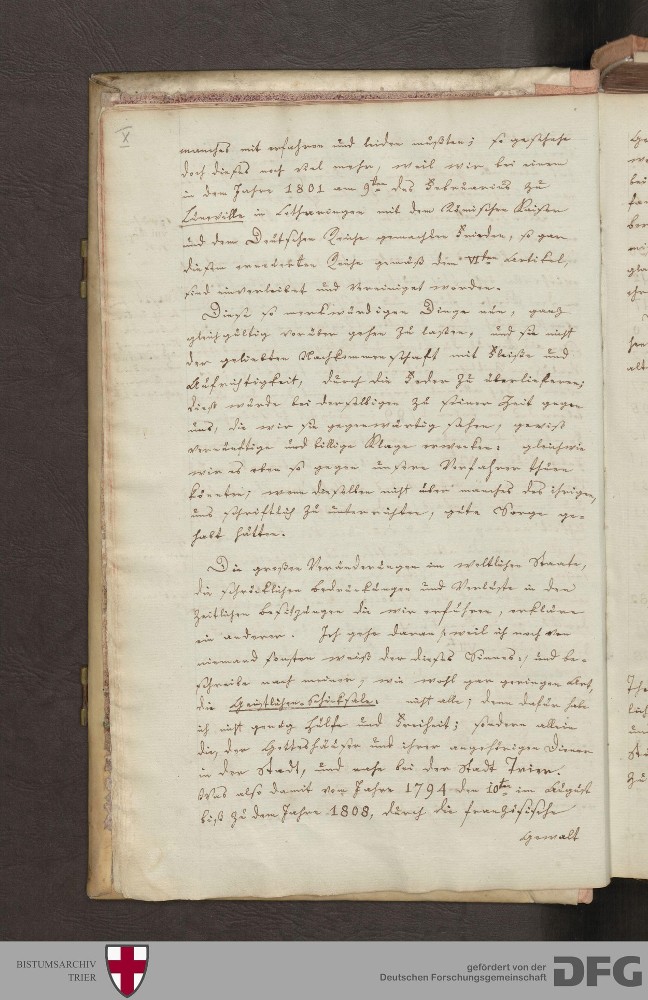 X
manches mit erfahren und leiden mußten; so geschehe
doch dieses noch viel mehr, weil wir bei einem
in dem Jahre 1801 am 9ten des Februarius zu
Lüneville in Lotharingen mit dem Römischen Kaiser
und dem Deutschen Reiche gemachten Frieden, so gar
diesem Reiche gemäß dem VIten Artikel,
sind einverleibet und vereiniget worden.
Diese so merkwürdigen Dinge nun, ganz
gleichgültig vorüber gehen zu laßen, und sie nicht
der geliebten Nachkommenschaft mit Fleiße und
Aufrichtigkeit, durch die Feder zu überliefern;
dieß würde bei derselbigen zu seiner Zeit gegen
uns, die wir sie gegenwärtig sehen, gewiß
vernünftige und billige Klage erwecken: gleichwie
wir es eben so gegen unsere Vorfahrer thuen
könnten; wenn dieselben nicht über manches des ihrigen,
uns schriftlich zu unterrichten, gute Sorge ge-
habt hätten.
Die großen Veränderungen im weltlichen Staate,
die schröcklichen bedruckungen und Verluste in den
zeitlichen besitzungen die wir erfuhren, erkläre
ein anderer. Ich gehe daran /: weil ich noch von
niemand sonsten weiß der dieses Sinnes :/ und be-
schreibe nach meiner, wie wohl gar geringen Art,
die Geistlichen-Schicksale: nicht alle; denn dafür habe
ich nicht genug Hülfe und Freiheit; sondern allein
die, der Gotteshäuser und ihrer angehörigen Diener
in der Stadt, und nahe bei der Stadt Trier.
Was also damit vom Jahre 1794 den 10ten im August
biß zu dem Jahre 1808, durch die französische
Gewalt
BISTUMSARCHIV
TRIER
gefördert von der
Deutschen Forschungsgemeinschaft
DFG